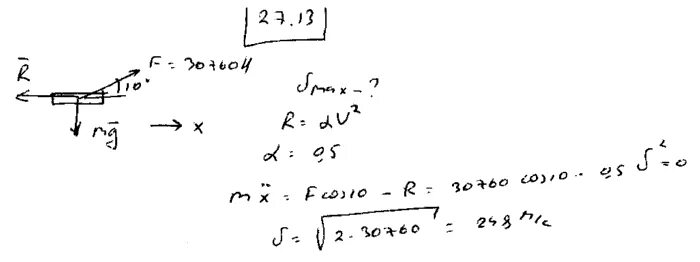 27.13
R̄
F = 30760H
10°
mḡ
x
υmax - ?
R = αV²
α = 0,5
mẍ = Fcos10 - R = 30760 cos10 - 0,5 υ² = 0
υ = √2·30760 = 248 м/с